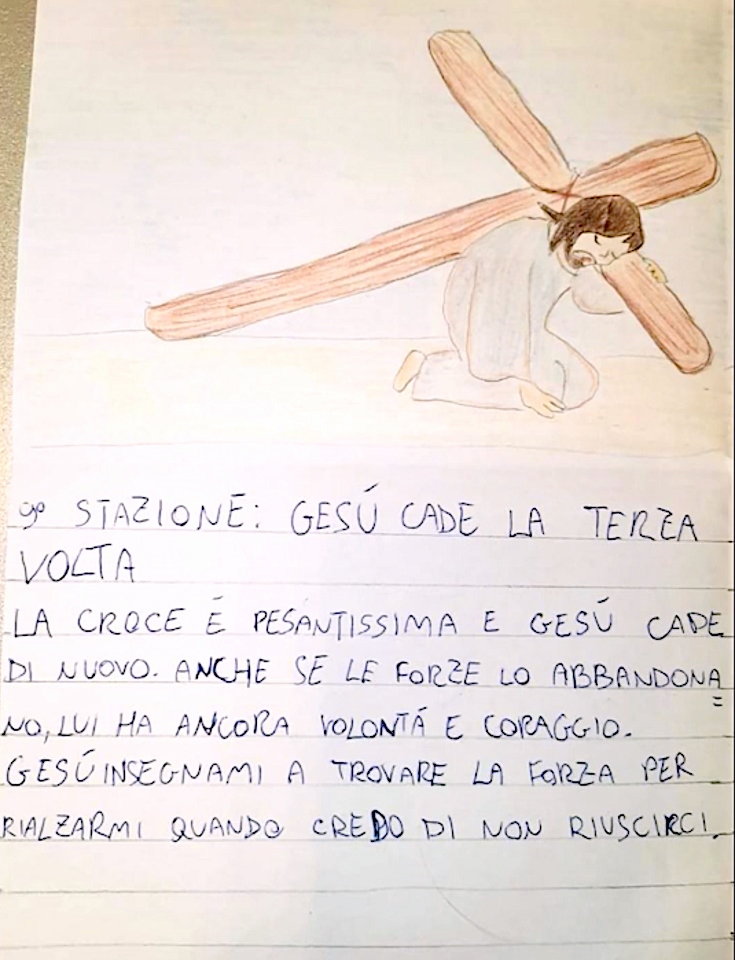 9° STAZIONE: GESÚ CADE LA TERZA
VOLTA
LA CROCE É PESANTISSIMA E GESÚ CADE
DI NUOVO. ANCHE SE LE FORZE LO ABBANDONA=
NO, LUI HA ANCORA VOLONTÁ E CORAGGIO.
GESÚ INSEGNAMI A TROVARE LA FORZA PER
RIALZARMI QUANDO CREDO DI NON RIUSCIRCI.